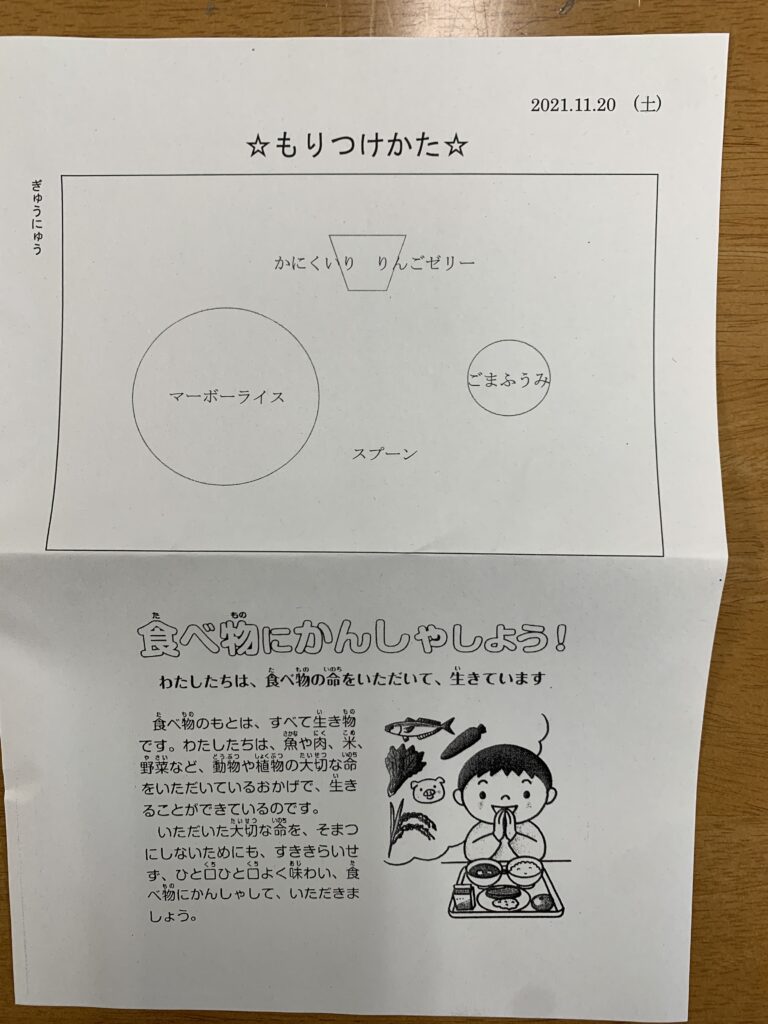 2021.11.20 (土)
☆もりつけかた☆
ぎゅうにゅう
かにくいり りんごゼリー
マーボーライス
ごまふうみ
スプーン
食べ物にかんしゃしよう!
わたしたちは、食べ物の命をいただいて、生きています
食べ物のもとは、すべて生き物
です。わたしたちは、魚や肉、米、
野菜など、動物や植物の大切な命
をいただいているおかげで、生き
ることができているのです。
いただいた大切な命を、そまつ
にしないためにも、すききらいせ
ず、ひと口ひと口よく味わい、食
べ物にかんしゃして、いただきま
しょう。